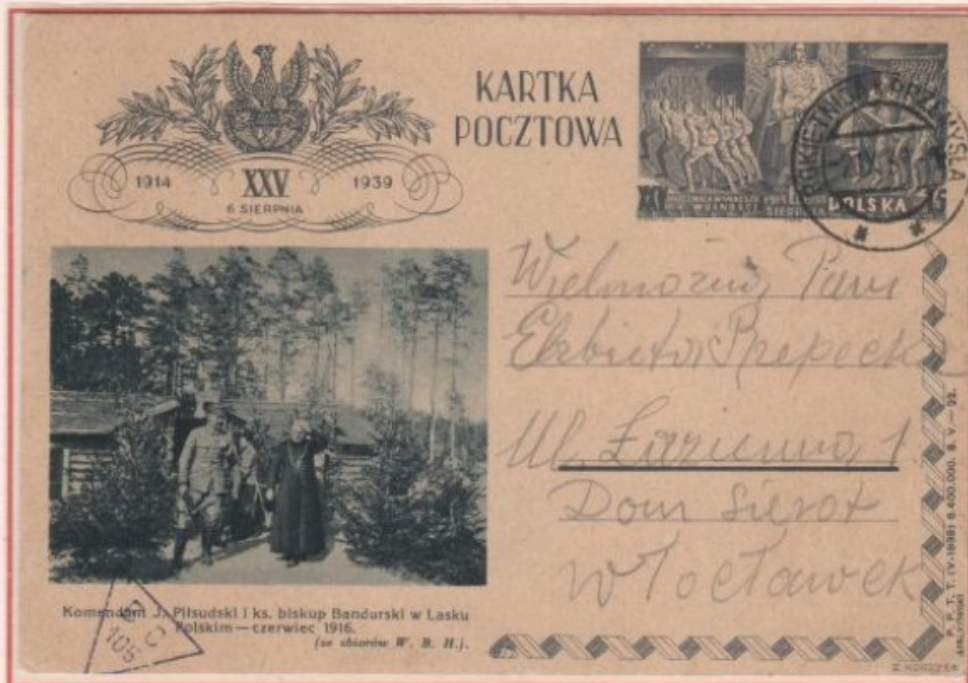 KARTKA
POCZTOWA
1914 XXV 1939
6 SIERPNIA
POLSKA
Wielmożna Pani
Elżbieta Rzepecka
Ul. Łazienna 1
Dom Sierot
Włocławek
Komendant J. Piłsudski i ks. biskup Bandurski w Lasku
Polskim — czerwiec 1916.
(ze zbiorów W. B. H.).
105